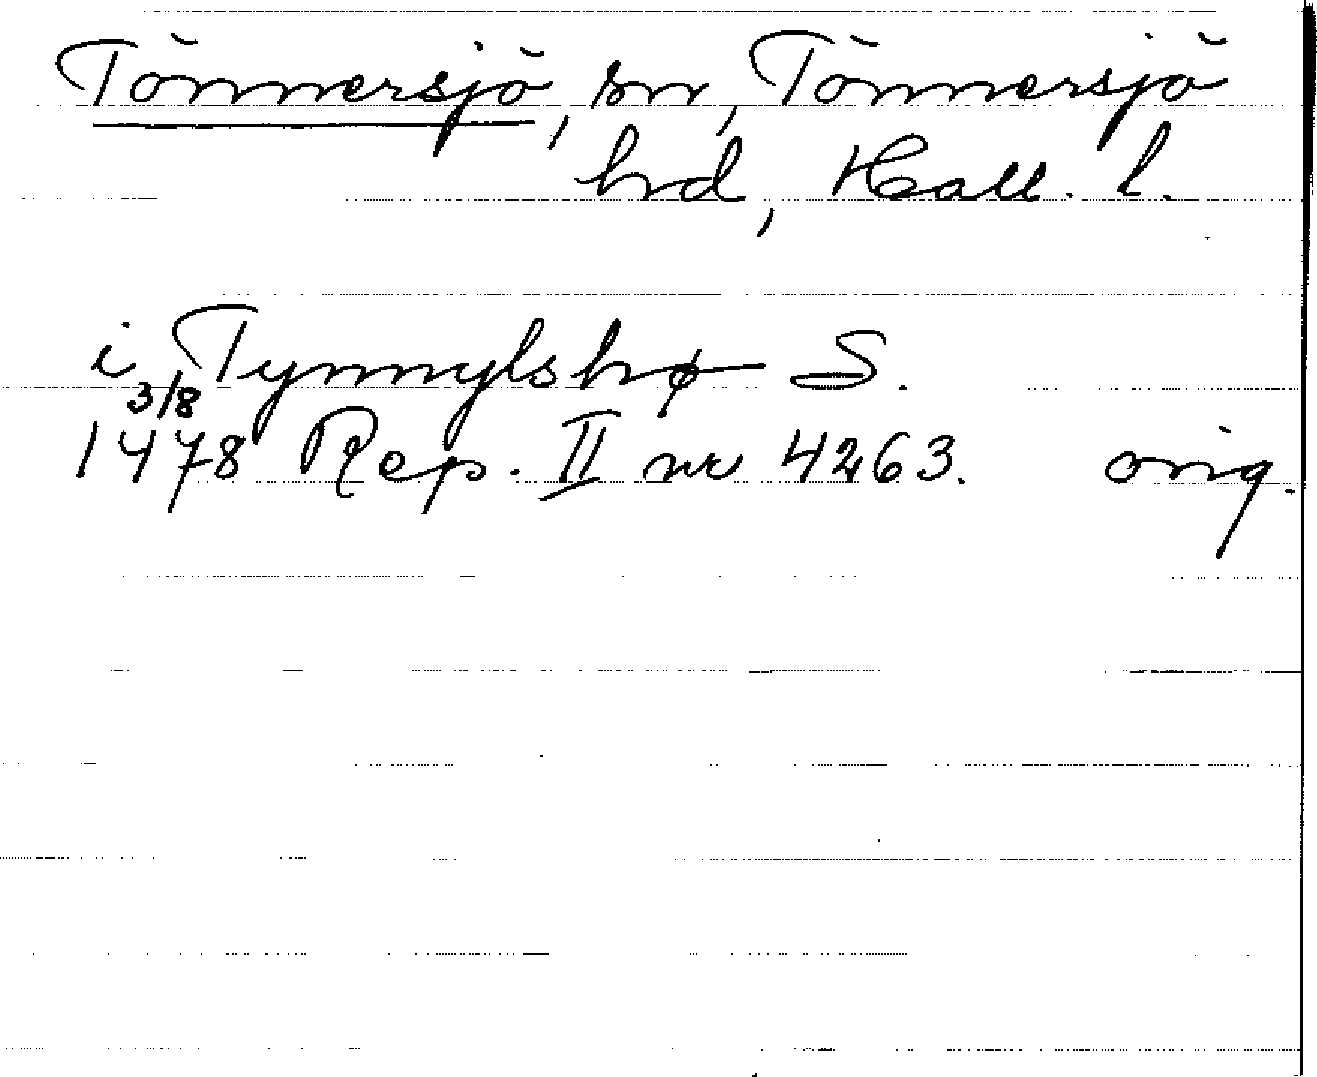 Tönnersjö, sn, Tönnersjö
hd, Hall. l.
i Tynnylshø S.
3/8
1478 Rep. II nr 4263. orig.